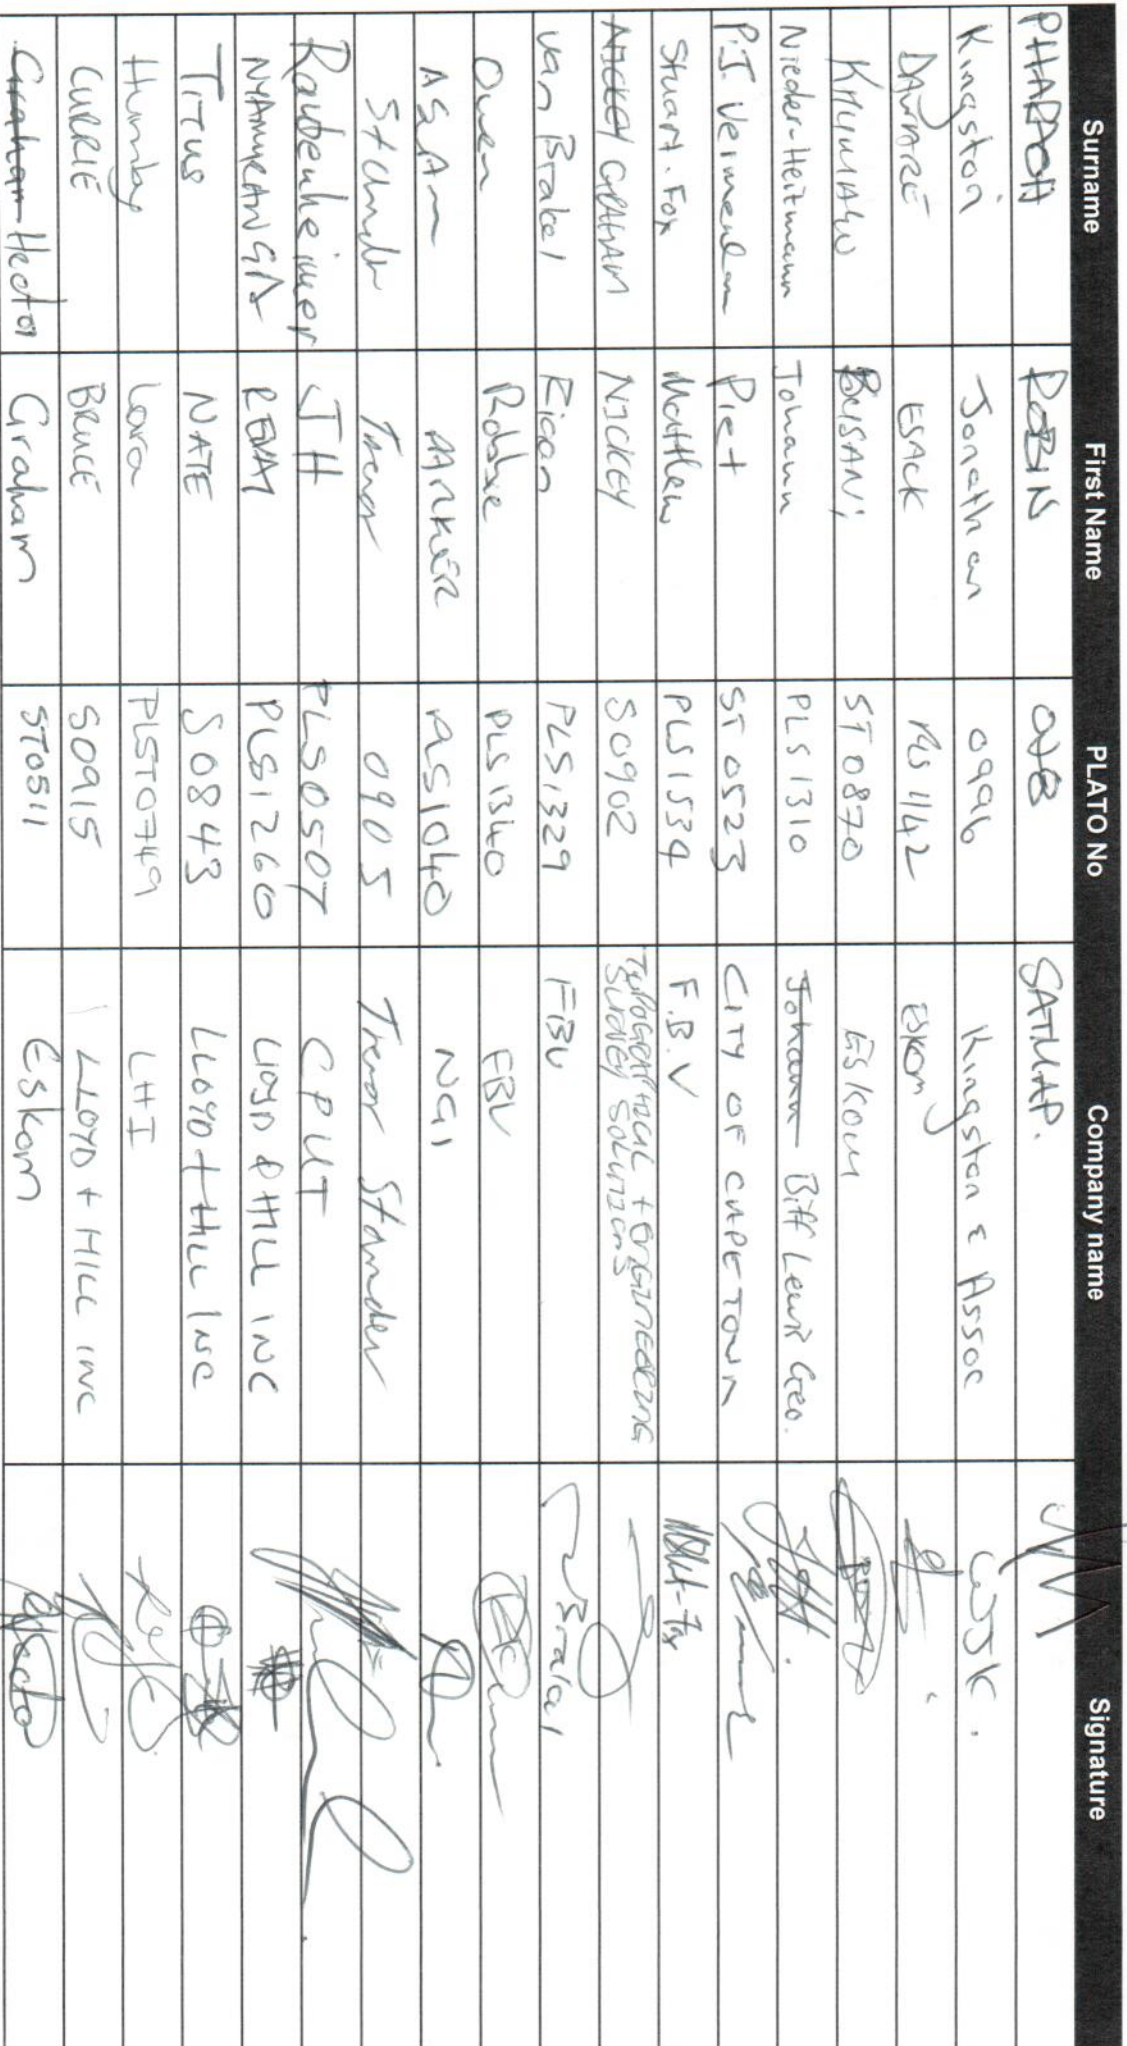 Surname First Name PLATO No Company name Signature
PHARAOH ROBIN SATMAP.
Kingston Jonathan 0996 Kingston & Assoc WJK.
DAWARE ESACK 1142 ESKOM
ST0870 ESKOM
Nieder-Heitmann Johann PLS 1310 Johann Biff Lewis Geo.
P.J. Vermeulen Piet ST 0523 CITY OF CAPE TOWN
Stuart-Fox Matthew PLS 1534 F.B.V
NICKEY GRAHAM NICKEY S0902 TOPOGRAPHICAL + ENGINEERING
SURVEY SOLUTIONS
van Brakel PLS1329 FBV
Owen Robbie PLS 1340 FBV
ASLAM 1040 NGI
Trevor 0905 Trevor Stander
Raubenheimer JH PLS0507 CPUT
NYAMURANGA PLS1260 LLOYD & HILL INC
TITUS NATE S0843 LLOYD + HILL INC
Humby Lara PLST0749 LHI
CURRIE BRUCE S0915 LLOYD + HILL INC
Graham Hector Graham ST0511 Eskom